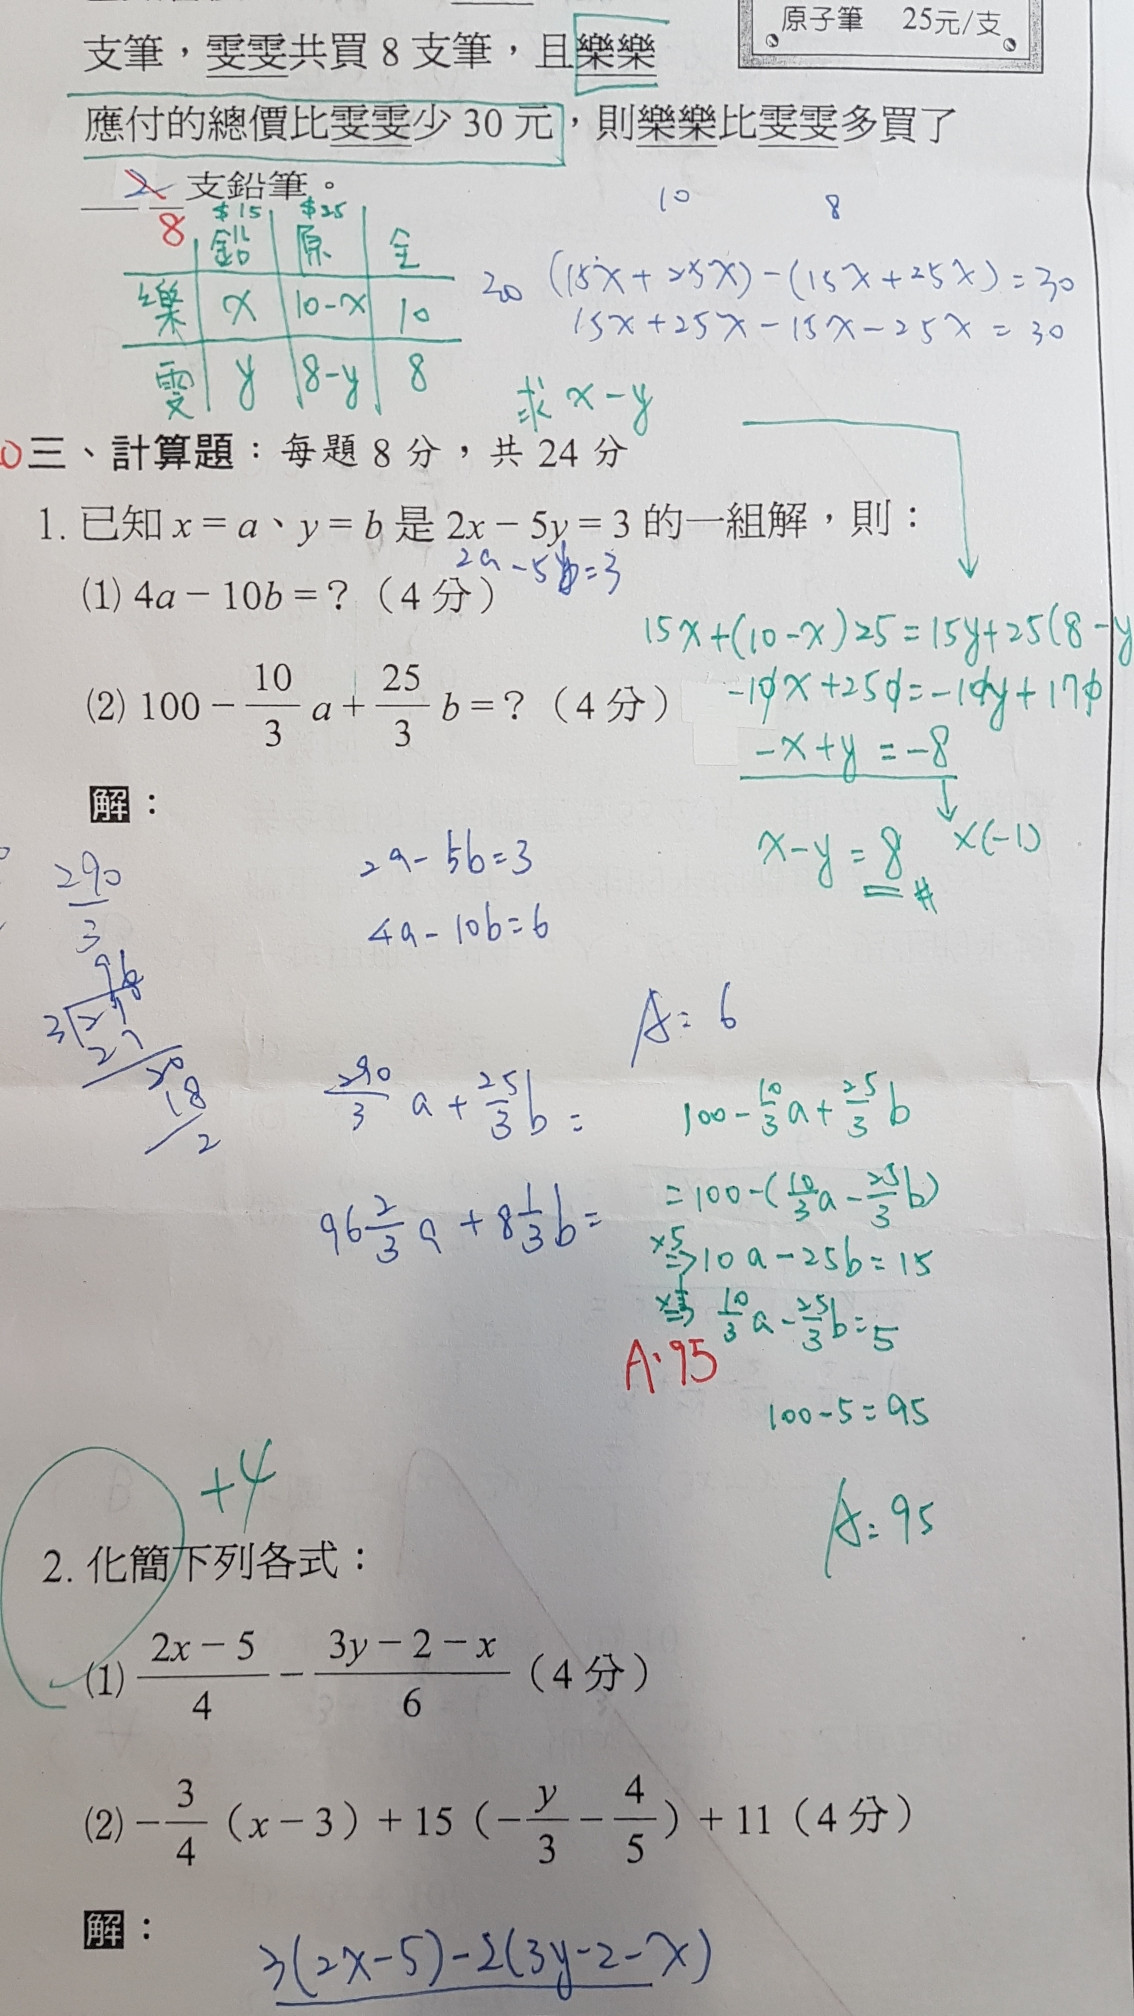 原子筆 25元/支
支筆，雯雯共買 8 支筆，且樂樂
應付的總價比雯雯少 30 元，則樂樂比雯雯多買了
2 支鉛筆。
8
10 8
$15 $25
鉛 原 全
樂 x 10-x 10
雯 y 8-y 8
30 (15x+25x)-(15x+25x)=30
15x+25x-15x-25x=30
求 x-y
三、計算題：每題 8 分，共 24 分
1. 已知 x = a、y = b 是 2x − 5y = 3 的一組解，則：
2a-5b=3
(1) 4a − 10b = ？（4 分）
15x+(10-x)25=15y+25(8-y
(2) 100 − 10/3 a + 25/3 b = ？（4 分）
-10x+250=-10y+170
-x+y=-8
x(-1)
x-y=8#
解：
290/3
96
3 29
27
20
18
2
2a-5b=3
4a-10b=6
A=6
290/3 a+25/3 b=
96 2/3 a+8 1/3 b=
100-10/3 a+25/3 b
=100-(10/3 a-25/3 b)
x5 ⇒10a-25b=15
10/3 a-25/3 b=5
A:95
100-5=95
A:95
+4
2. 化簡下列各式：
(1) 2x − 5/4 − 3y − 2 − x/6（4 分）
(2) −3/4（x − 3）+ 15（−y/3 − 4/5）+ 11（4 分）
解：
3(2x-5)-2(3y-2-x)